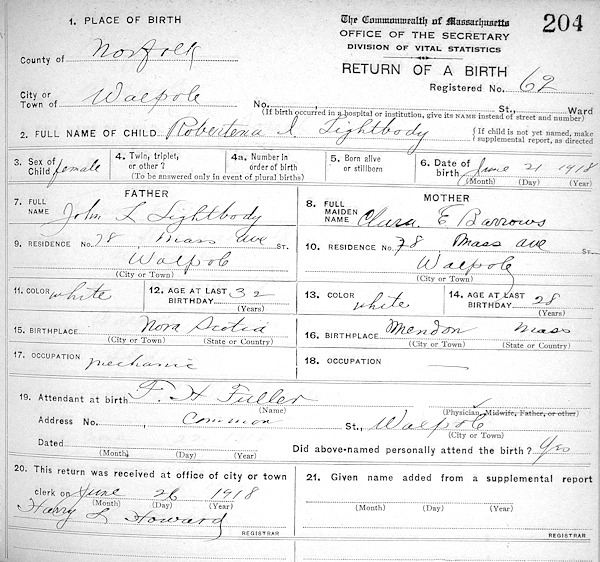 204
The Commonwealth of Massachusetts
OFFICE OF THE SECRETARY
DIVISION OF VITAL STATISTICS
RETURN OF A BIRTH
Registered No. 62
1. PLACE OF BIRTH
County of Norfolk
City or
Town of Walpole
No. , St., Ward
(If birth occurred in a hospital or institution, give its NAME instead of street and number)
2. FULL NAME OF CHILD Robertena I. Lightbody { If child is not yet named, make
supplemental report, as directed
3. Sex of
Child female
4. Twin, triplet,
or other ?
4a. Number in
order of birth
(To be answered only in event of plural births)
5. Born alive
or stillborn
6. Date of
birth June 21 1918
(Month) (Day) (Year)
FATHER
7. FULL
NAME John L Lightbody
MOTHER
8. FULL
MAIDEN
NAME Clara E Barrows
9. RESIDENCE No. 78, Mass Ave St.
Walpole
(City or Town)
10. RESIDENCE No. 78 Mass ave St.
Walpole
(City or Town)
11. COLOR white
12. AGE AT LAST
BIRTHDAY 32
(Years)
13. COLOR white
14. AGE AT LAST
BIRTHDAY 28
(Years)
15. BIRTHPLACE Nova Scotia
(City or Town) (State or Country)
16. BIRTHPLACE Mendon Mass
(City or Town) (State or Country)
17. OCCUPATION mechanic
18. OCCUPATION —
19. Attendant at birth F. H Fuller
(Name) (Physician, Midwife, Father, or other)
Address No. , Common St., Walpole
(City or Town)
Dated
(Month) (Day) (Year)
Did above-named personally attend the birth? Yes
20. This return was received at office of city or town
clerk on June 26 1918
(Month) (Day) (Year)
Harry L Howard
REGISTRAR
21. Given name added from a supplemental report
(Month) (Day) (Year)
REGISTRAR